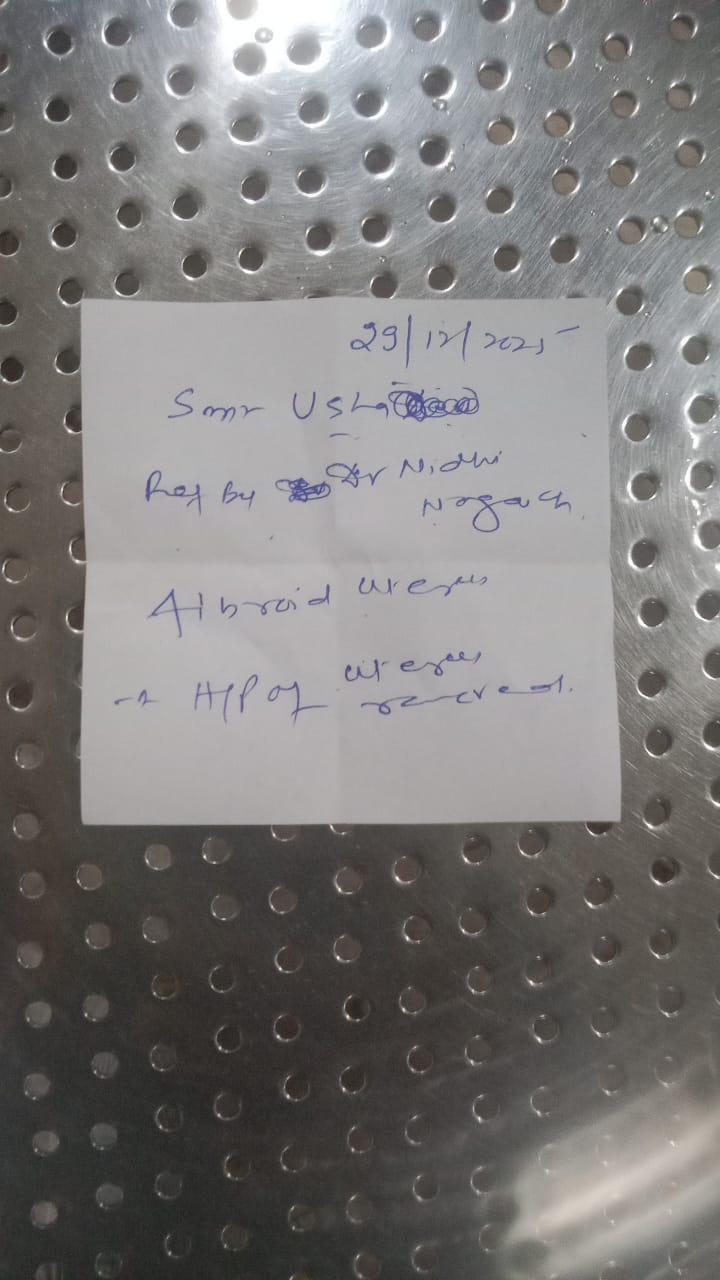 29/12/2025
Smr Usha
Ref By Dr Nidhi
Nogach
Fibroid uterus
H/P of uterus